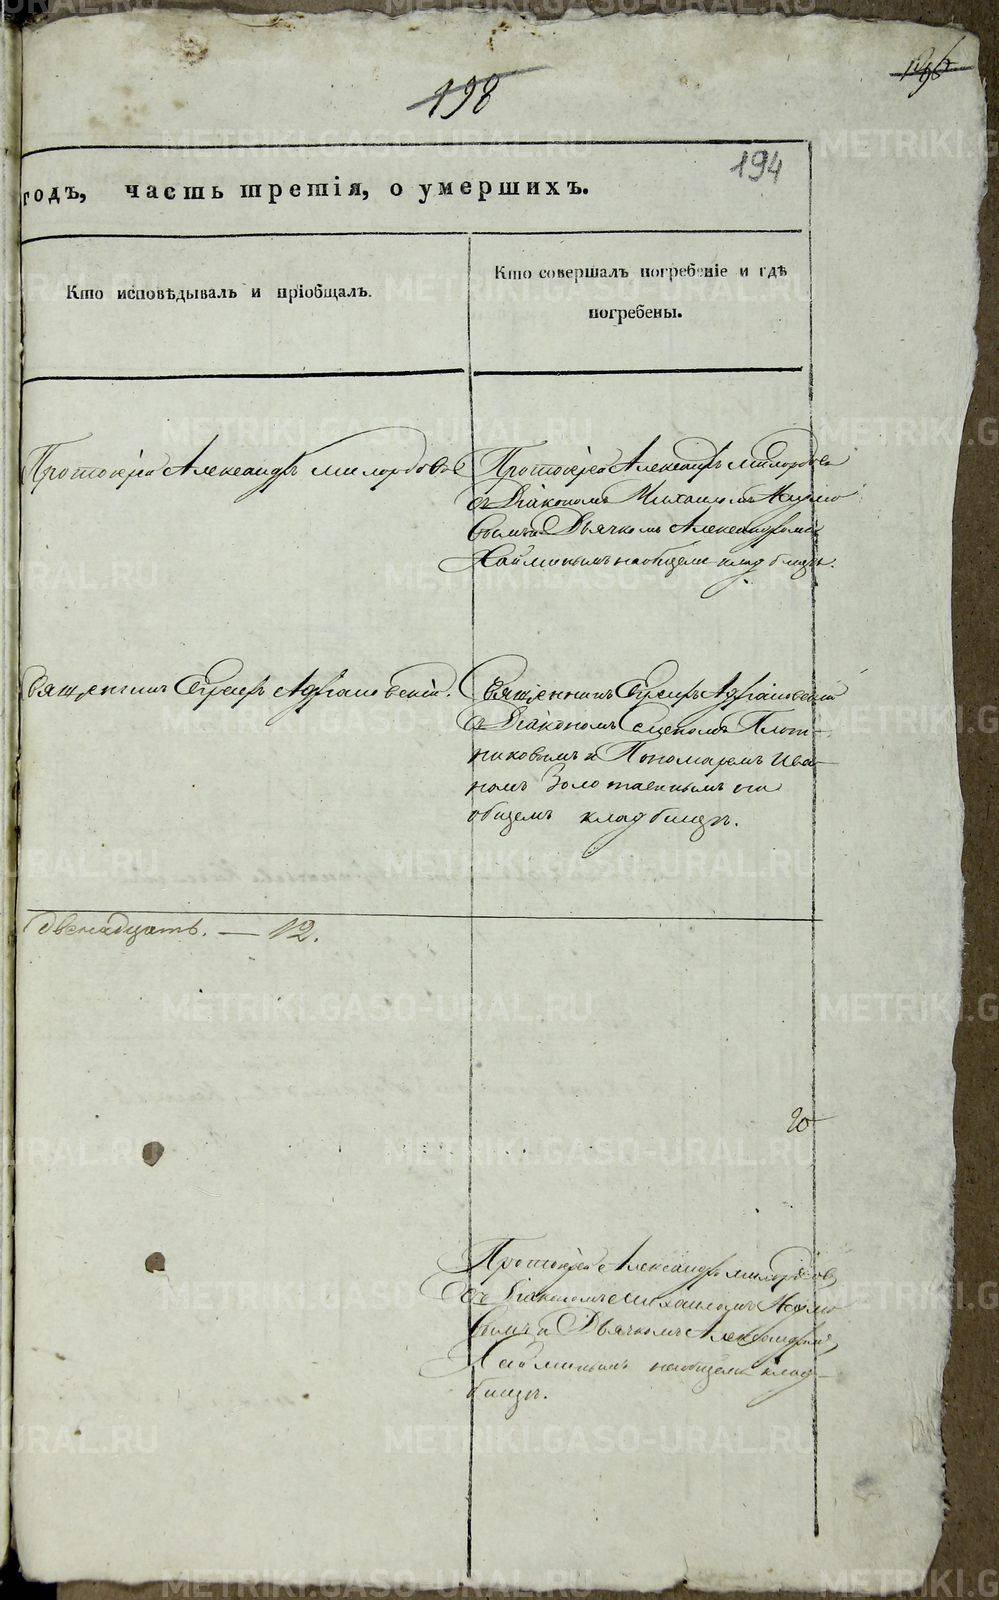 198
194
годъ, часть третія, о умершихъ.
Кто исповѣдывалъ и пріобщалъ.
Кто совершалъ погребеніе и гдѣ
погребены.
Протоіерей Александръ Милордовъ
Протоіерей Александръ Милордовъ
съ Діакономъ Михаиломъ Наумо
вымъ и Дьячкомъ Александромъ
Хайминымъ на общемъ кладбищѣ.
Священникъ Сергій Адріановскій.
Священникъ Сергій Адріановскій
съ Діакономъ Плот-
никовымъ и Пономаремъ Ива-
номъ Золотавинымъ на
общемъ кладбищѣ.
двенадцать. — 12.
20
Протоіерей Александръ Милордовъ,
съ Діакономъ Михаиломъ Наумо
вымъ и Дьячкомъ Александромъ
Хайминымъ на общемъ клад-
бищѣ.
METRIKI.GASO-URAL.RU